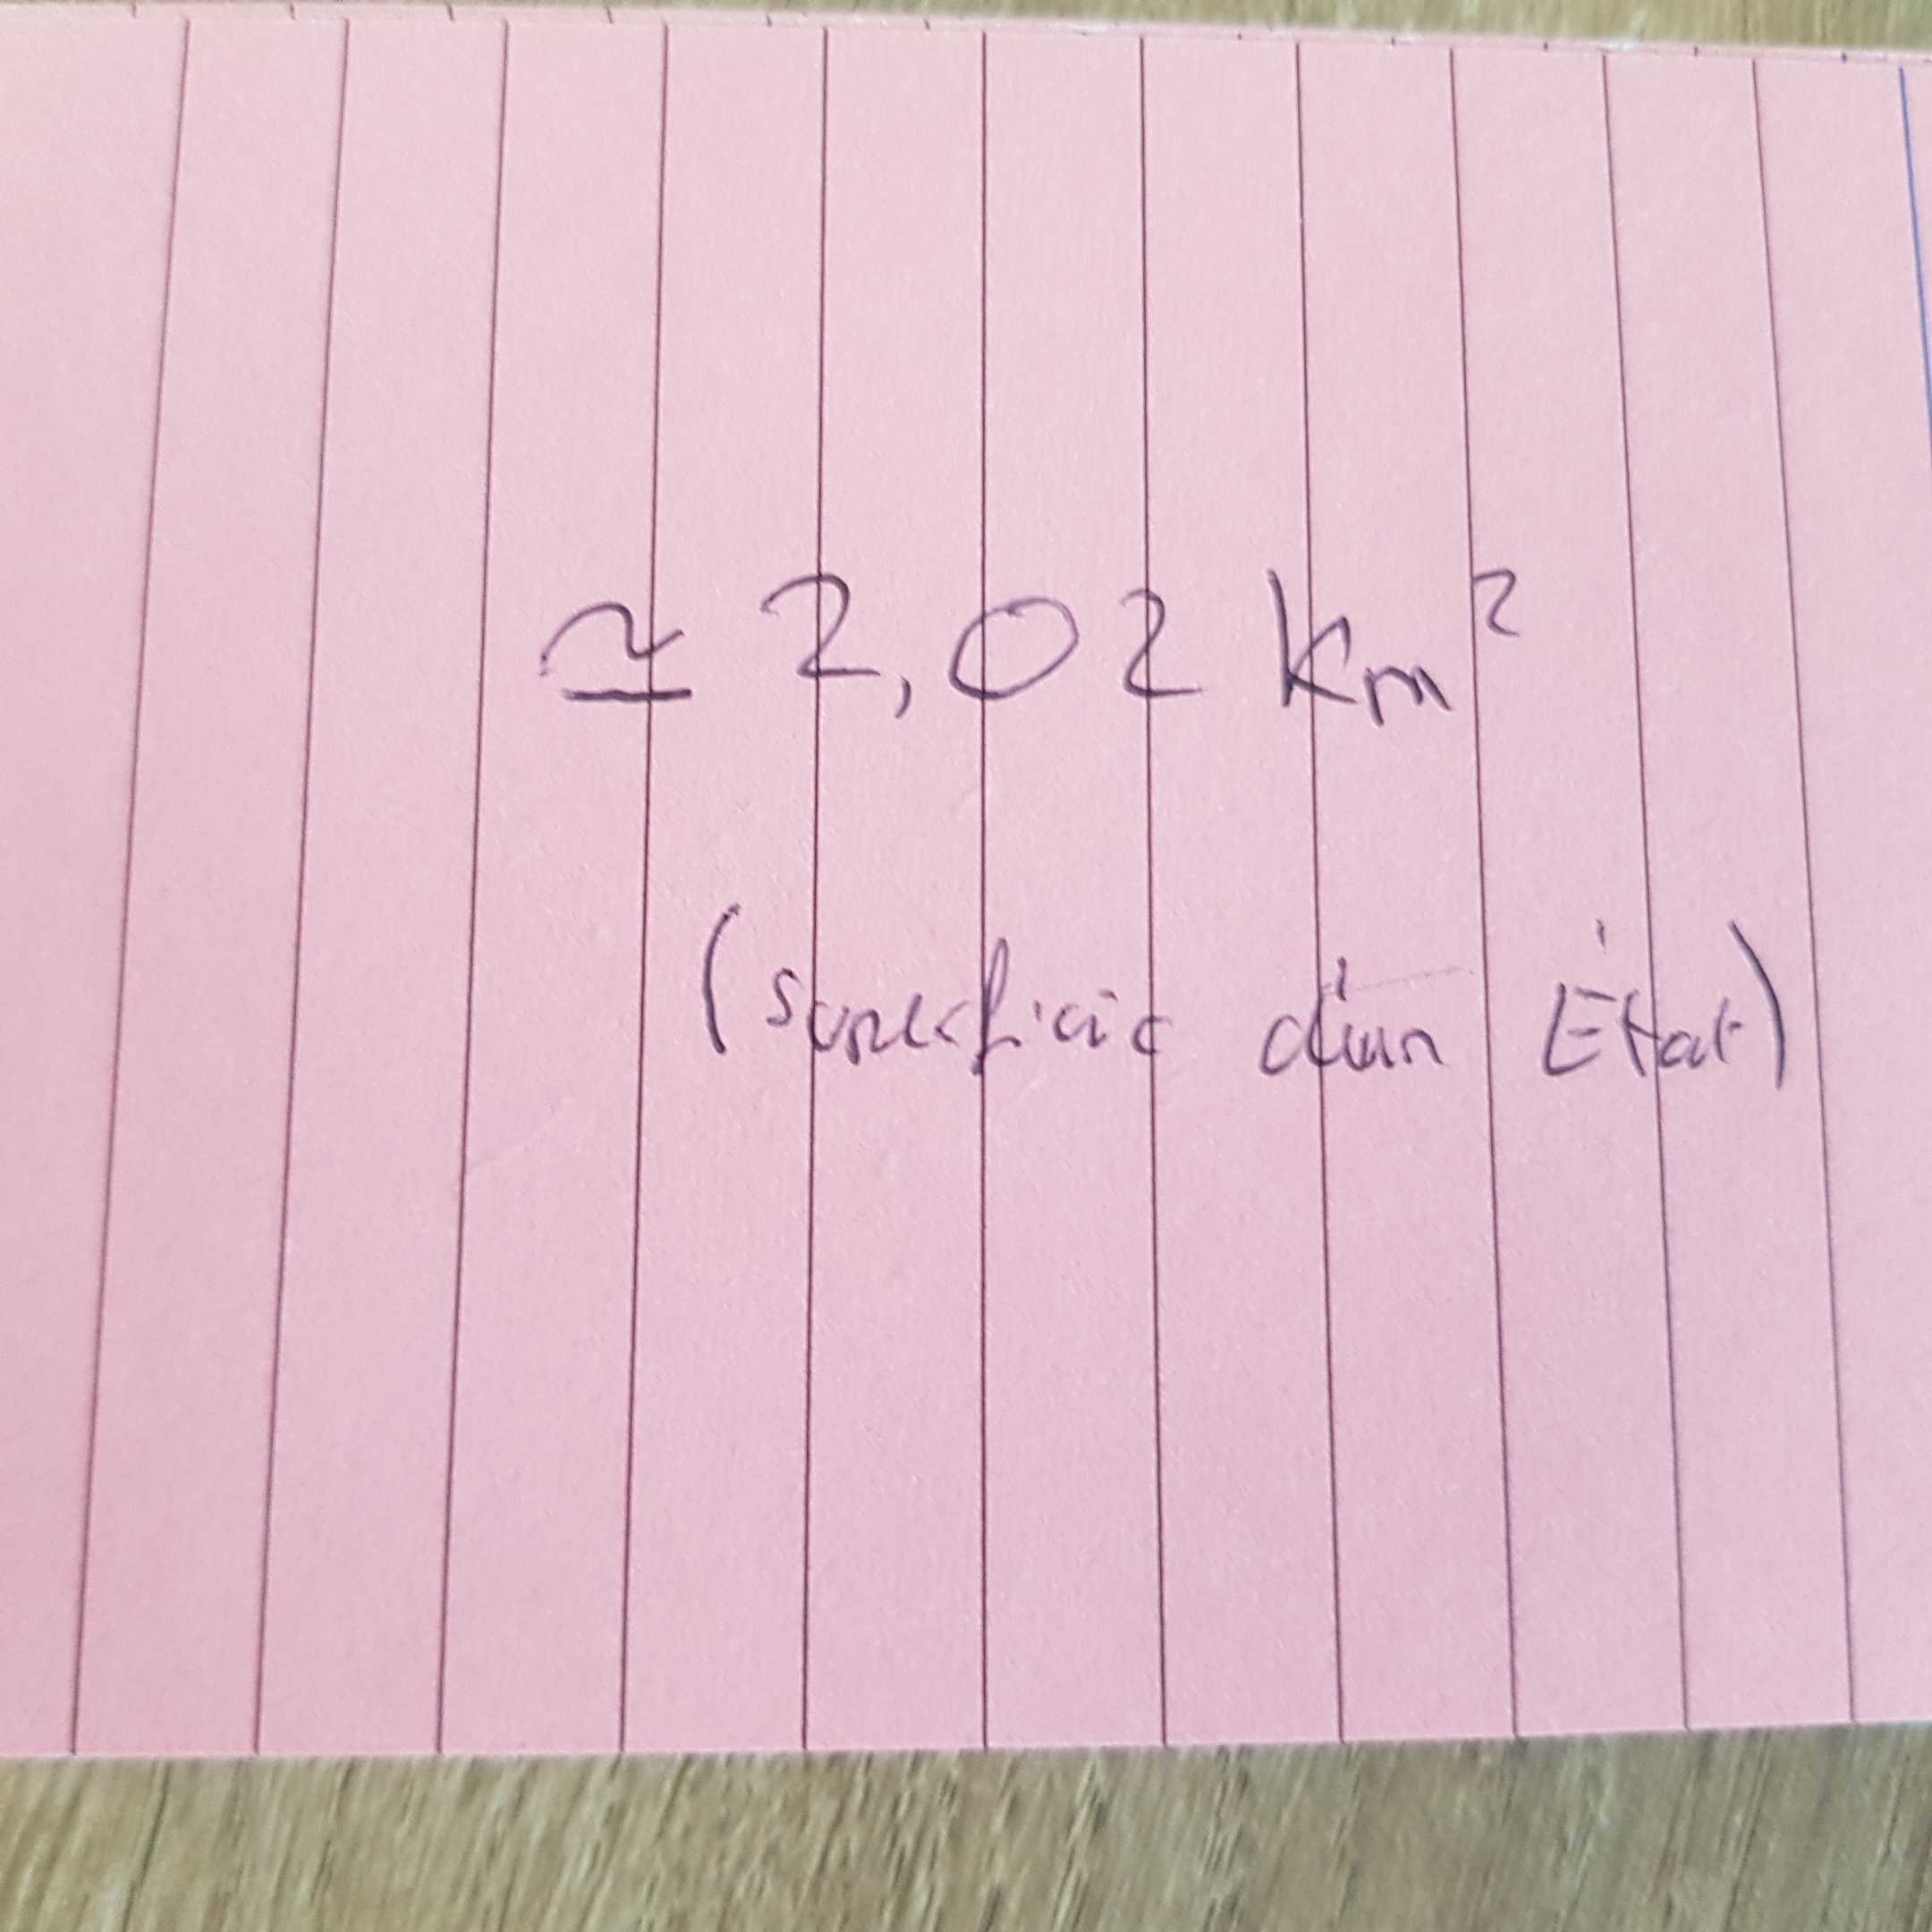 ≃ 2,02 km²
(superficie d'un État)